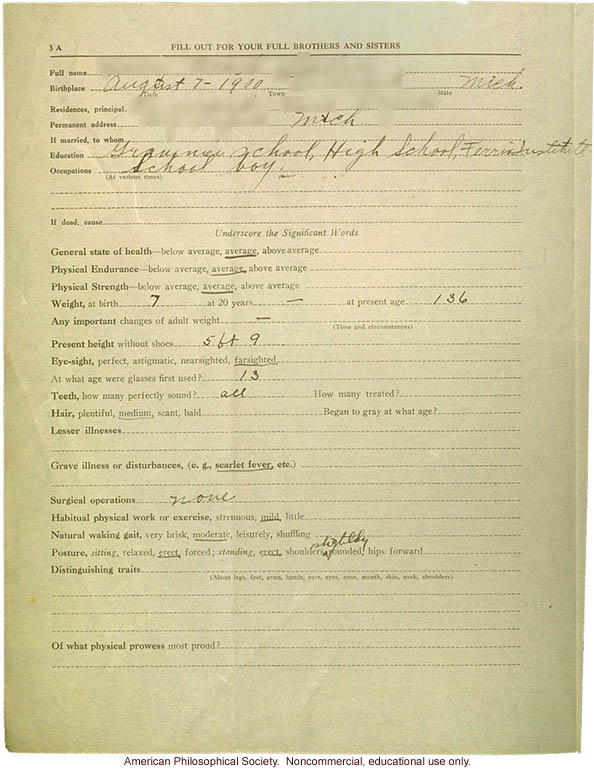 3 A FILL OUT FOR YOUR FULL BROTHERS AND SISTERS
Full name
Birthplace August 7 - 1900 Mich.
Date Town State
Residences, principal
Permanent address Mich
If married, to whom
Education school, High School, Ferris Institute
Occupations School boy.
(At various times)
If dead, cause
Underscore the Significant Words
General state of health—below average, average, above average
Physical Endurance—below average, average, above average
Physical Strength—below average, average, above average
Weight, at birth 7 at 20 years — at present age 136
Any important changes of adult weight —
(Time and circumstances)
Present height without shoes 5 ft 9
Eye-sight, perfect, astigmatic, nearsighted, farsighted
At what age were glasses first used? 13
Teeth, how many perfectly sound? all How many treated?
Hair, plentiful, medium, scant, bald Began to gray at what age?
Lesser illnesses
Grave illness or disturbances, (e. g., scarlet fever, etc.)
Surgical operations none
Habitual physical work or exercise, strenuous, mild, little
Natural waking gait, very brisk, moderate, leisurely, shuffling
Posture, sitting, relaxed, erect, forced; standing, erect, shoulders slightly rounded, hips forward
Distinguishing traits
(About legs, feet, arms, hands, ears, eyes, nose, mouth, skin, neck, shoulders)
Of what physical prowess most proud?
American Philosophical Society. Noncommercial, educational use only.